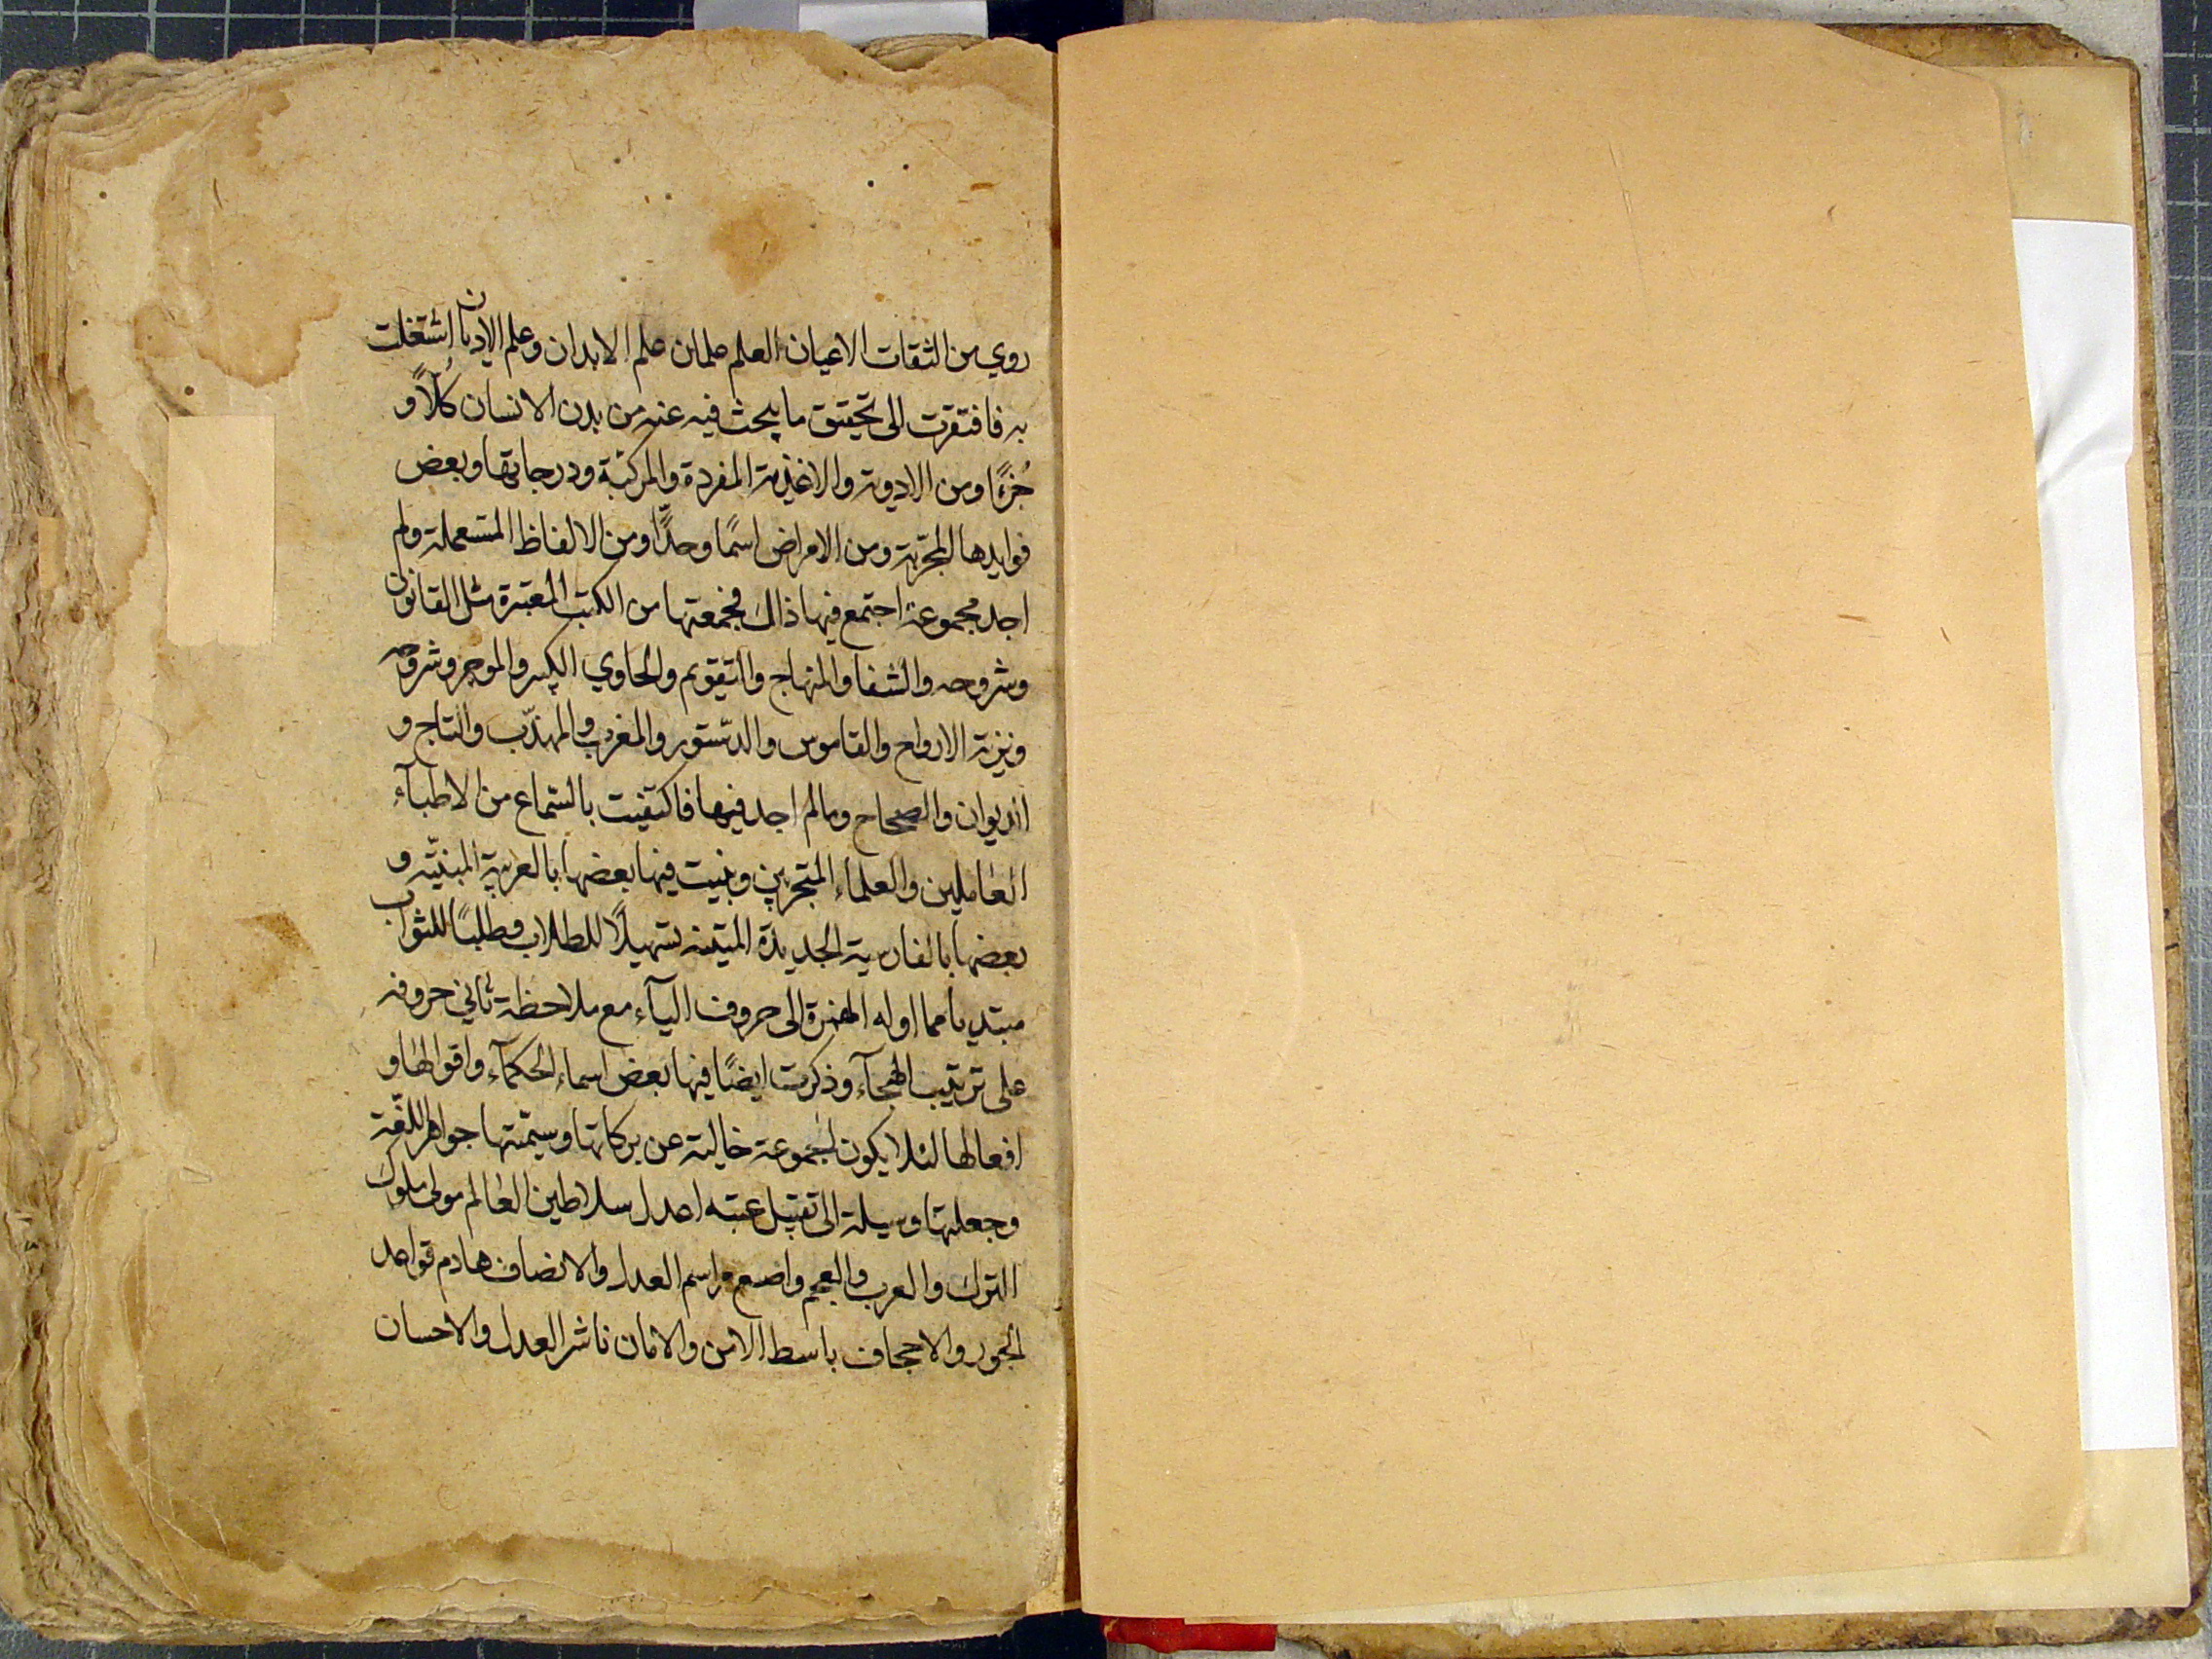 روي من الثقات الاعيان العلم علمان علم الابدان وعلم الاديان اشتغلت
به فافتقرت الى تحقيق ما يبحث فيه عنه من بدن الانسان كُلّاً و
جُزءًا ومن الادوية والاغذية المفردة والمركبّة ودرجاتها وبعض
فوايدها المجرّبة ومن الامراض اسمًا وحدًّا ومن الالفاظ المستعملة ولم
اجد مجموعة اجتمع فيها ذالك فجمعتها من الكتب المعتبرة مثل القانون
وشروحه والشفا والمنهاج والتقويم والحاوي الكبير والموجز وشروحه
ونزهة الارواح والقاموس والدّستور والمغرب والمهذّب والتاج و
الديوان والصحاح ومالم اجد فيها فاكتفيت بالسّماع من الاطبآء
العاملين والعلماء المتبحرين وبنيت فيها بعضها بالعربية المبنيّه و
بعضها بالفارسية الجديدة المتينه تسهيلاً للطلاب وطلبًا للثواب
مبتديا مما اوله الهمزة الى حروف اليآء مع ملاحظة ثاني حروفه
على ترتيب الهجآء وذكرت ايضًا فيها بعض اسماء الحكمآء واقوالها و
افعالها لئلا يكون المجموعة خالية عن بركاتها وسمّيتها جواهر اللّغة
وجعلتها وسيلة الى تقبيل عتبه اعدل سلاطين العالم مولى ملوك
الترك والعرب والعجم واضع مراسم العدل والانصاف هادم قواعد
الجور والاجحاف باسط الامن والامان ناشر العدل والاحسان